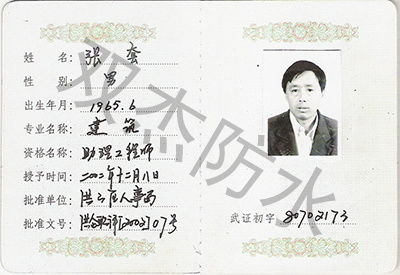 姓 名: 张 奎
性 别: 男
出生年月: 1965.6
专业名称: 建 筑
资格名称: 助理工程师
授予时间: 二00二年十二月八日
批准单位: 洪山区人事局
批准文号: 洪职评[2002]07号
武证初字 80702173
双杰防水